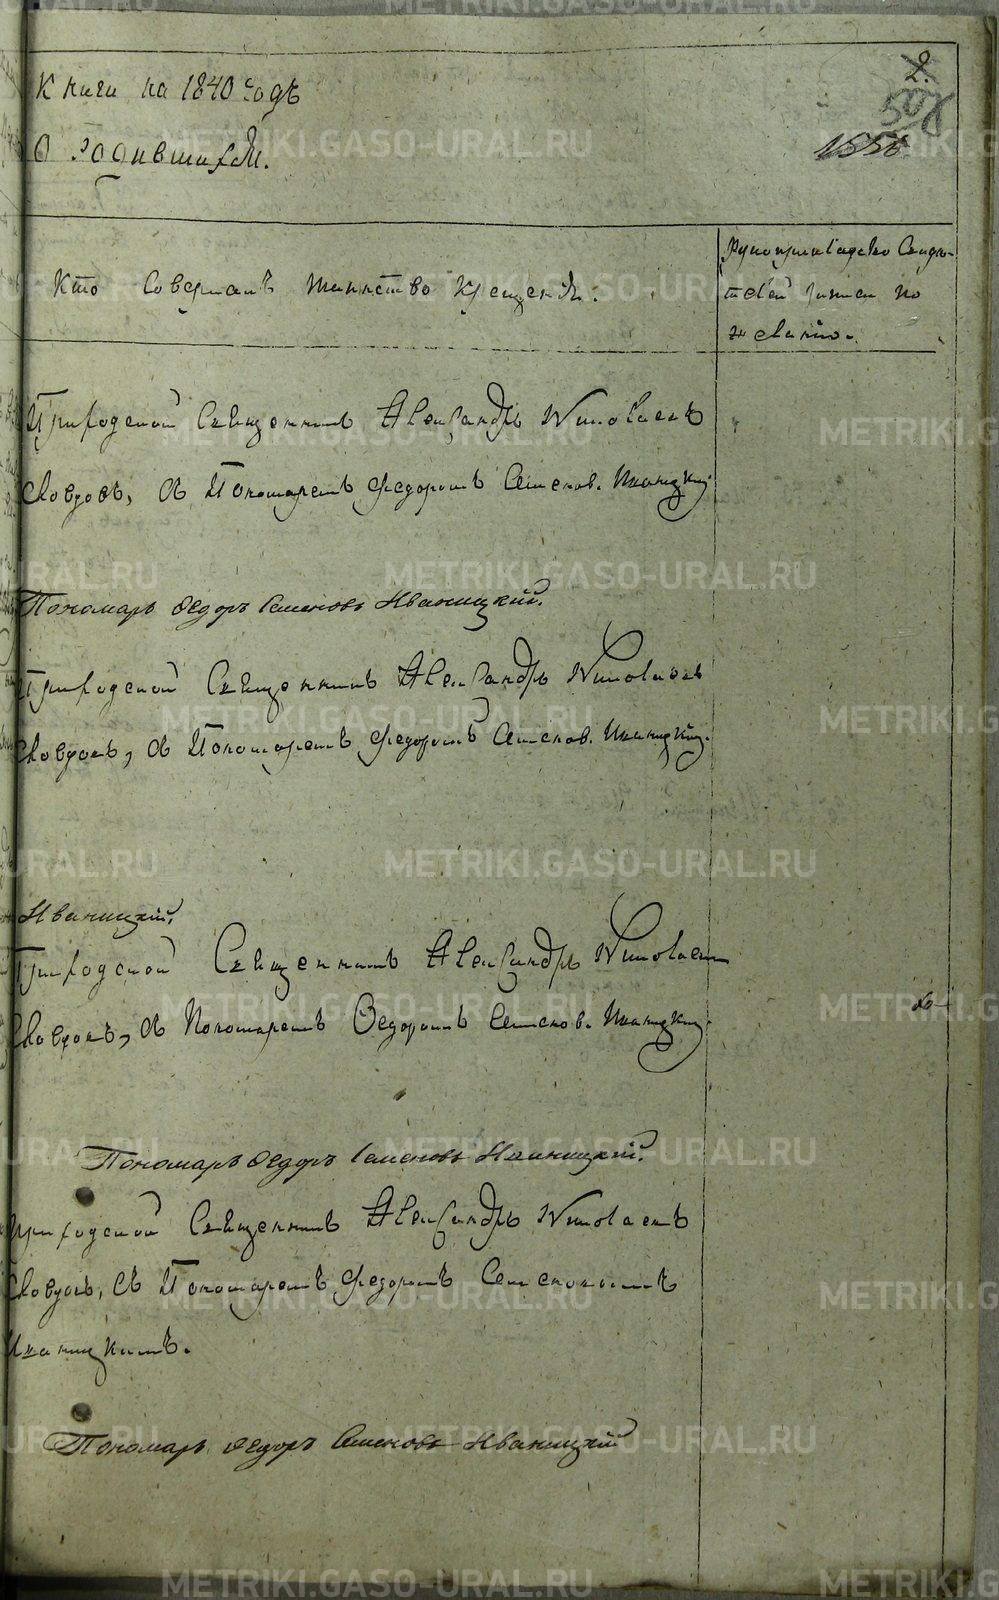 2.
508
1556
Книги на 1840 годъ
О родившихся.
Кто совершалъ таинство крещенія.
Рукоприкладство свидѣ-
телей записи по
желанію.
Приходской Священникъ Александръ Николаевъ
съ Пономаремъ Федоромъ Семенов. Иваницким
Пономарь Ѳедоръ Семеновъ Иваницкій.
Приходской Священникъ Александръ Николаевъ
съ Пономаремъ Федоромъ Семенов. Иваницким.
Иваницкій.
Приходской Священникъ Александръ Николаевъ
съ Пономаремъ Ѳедоромъ Семенов. Иваницким.
Пономарь Ѳедоръ Семеновъ Иваницкій.
Приходской Священникъ Александръ Николаевъ
съ Пономаремъ Федоромъ Семеновымъ
Иваницкимъ.
Пономарь Ѳедоръ Семеновъ Иваницкій
METRIKI.GASO-URAL.RU